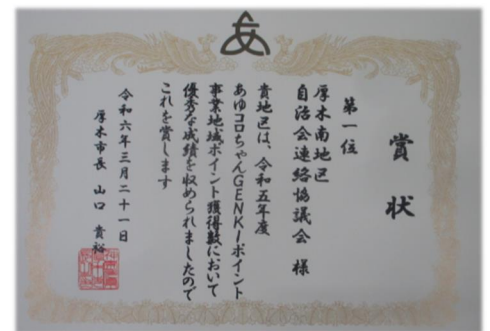 賞状
第一位
厚木南地区
自治会連絡協議会 様
貴地区は、令和五年度
あゆコロちゃんGENKIポイント
事業地域ポイント獲得数において
優秀な成績を収められましたので
これを賞します
令和六年三月二十一日
厚木市長 山口 貴裕